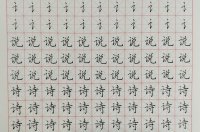 讠讠讠讠讠讠讠讠讠讠
讠讠讠讠讠讠讠讠讠讠
说说说说说说说说说说
说说说说说说说说说说
说说说说说说说说说说
诗诗诗诗诗诗诗诗诗诗
诗诗诗诗诗诗诗诗诗诗
诗诗诗诗诗诗诗诗诗诗